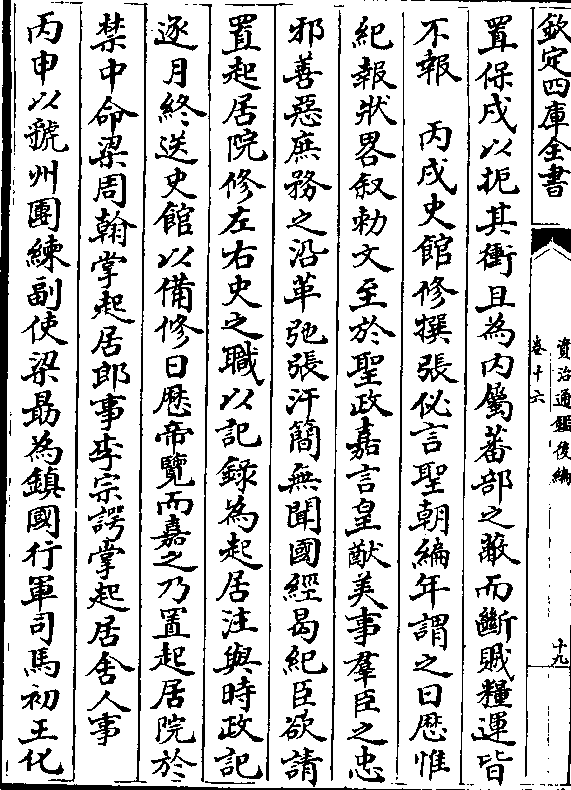 欽定四庫全書
資治通鑑後編
卷十六
十九
置保戍以扼其衝且為内屬蕃部之蔽而斷賊糧運皆
不報　丙戌史館修撰張佖言聖朝編年謂之日厯惟
紀報狀畧叙勅文至於聖政嘉言皇猷美事羣臣之忠
邪善惡庶務之沿革弛張汗簡無聞國經曷紀臣欲請
置起居院修左右史之職以記錄為起居注與時政記
逐月終送史館以備修日厯帝覽而嘉之乃置起居院於
禁中命梁周翰掌起居郎事李宗諤掌起居舍人事
丙申以虢州團練副使梁勗為鎮國行軍司馬初王化